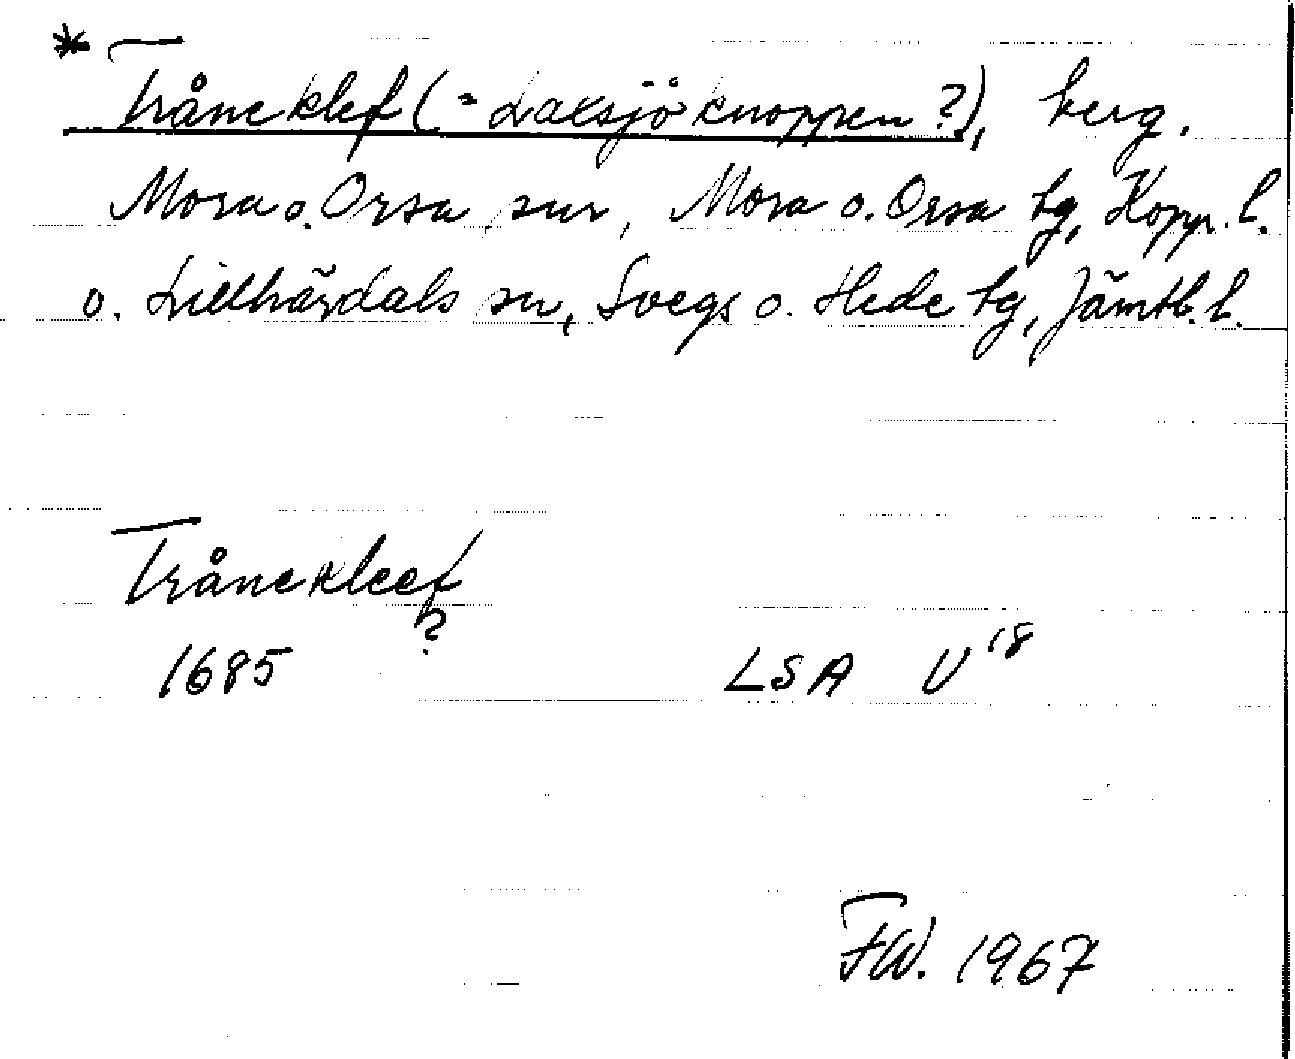 * Tråneklef (= Laksjöknoppen?), berg.
Mora o. Orsa snr, Mora o. Orsa tg, Kopp. l.
o. Lillhärdals sn, Svegs o. Hede tg, Jämtl. l.
Trånekleef
?
1685 LSA U 18
FW. 1967